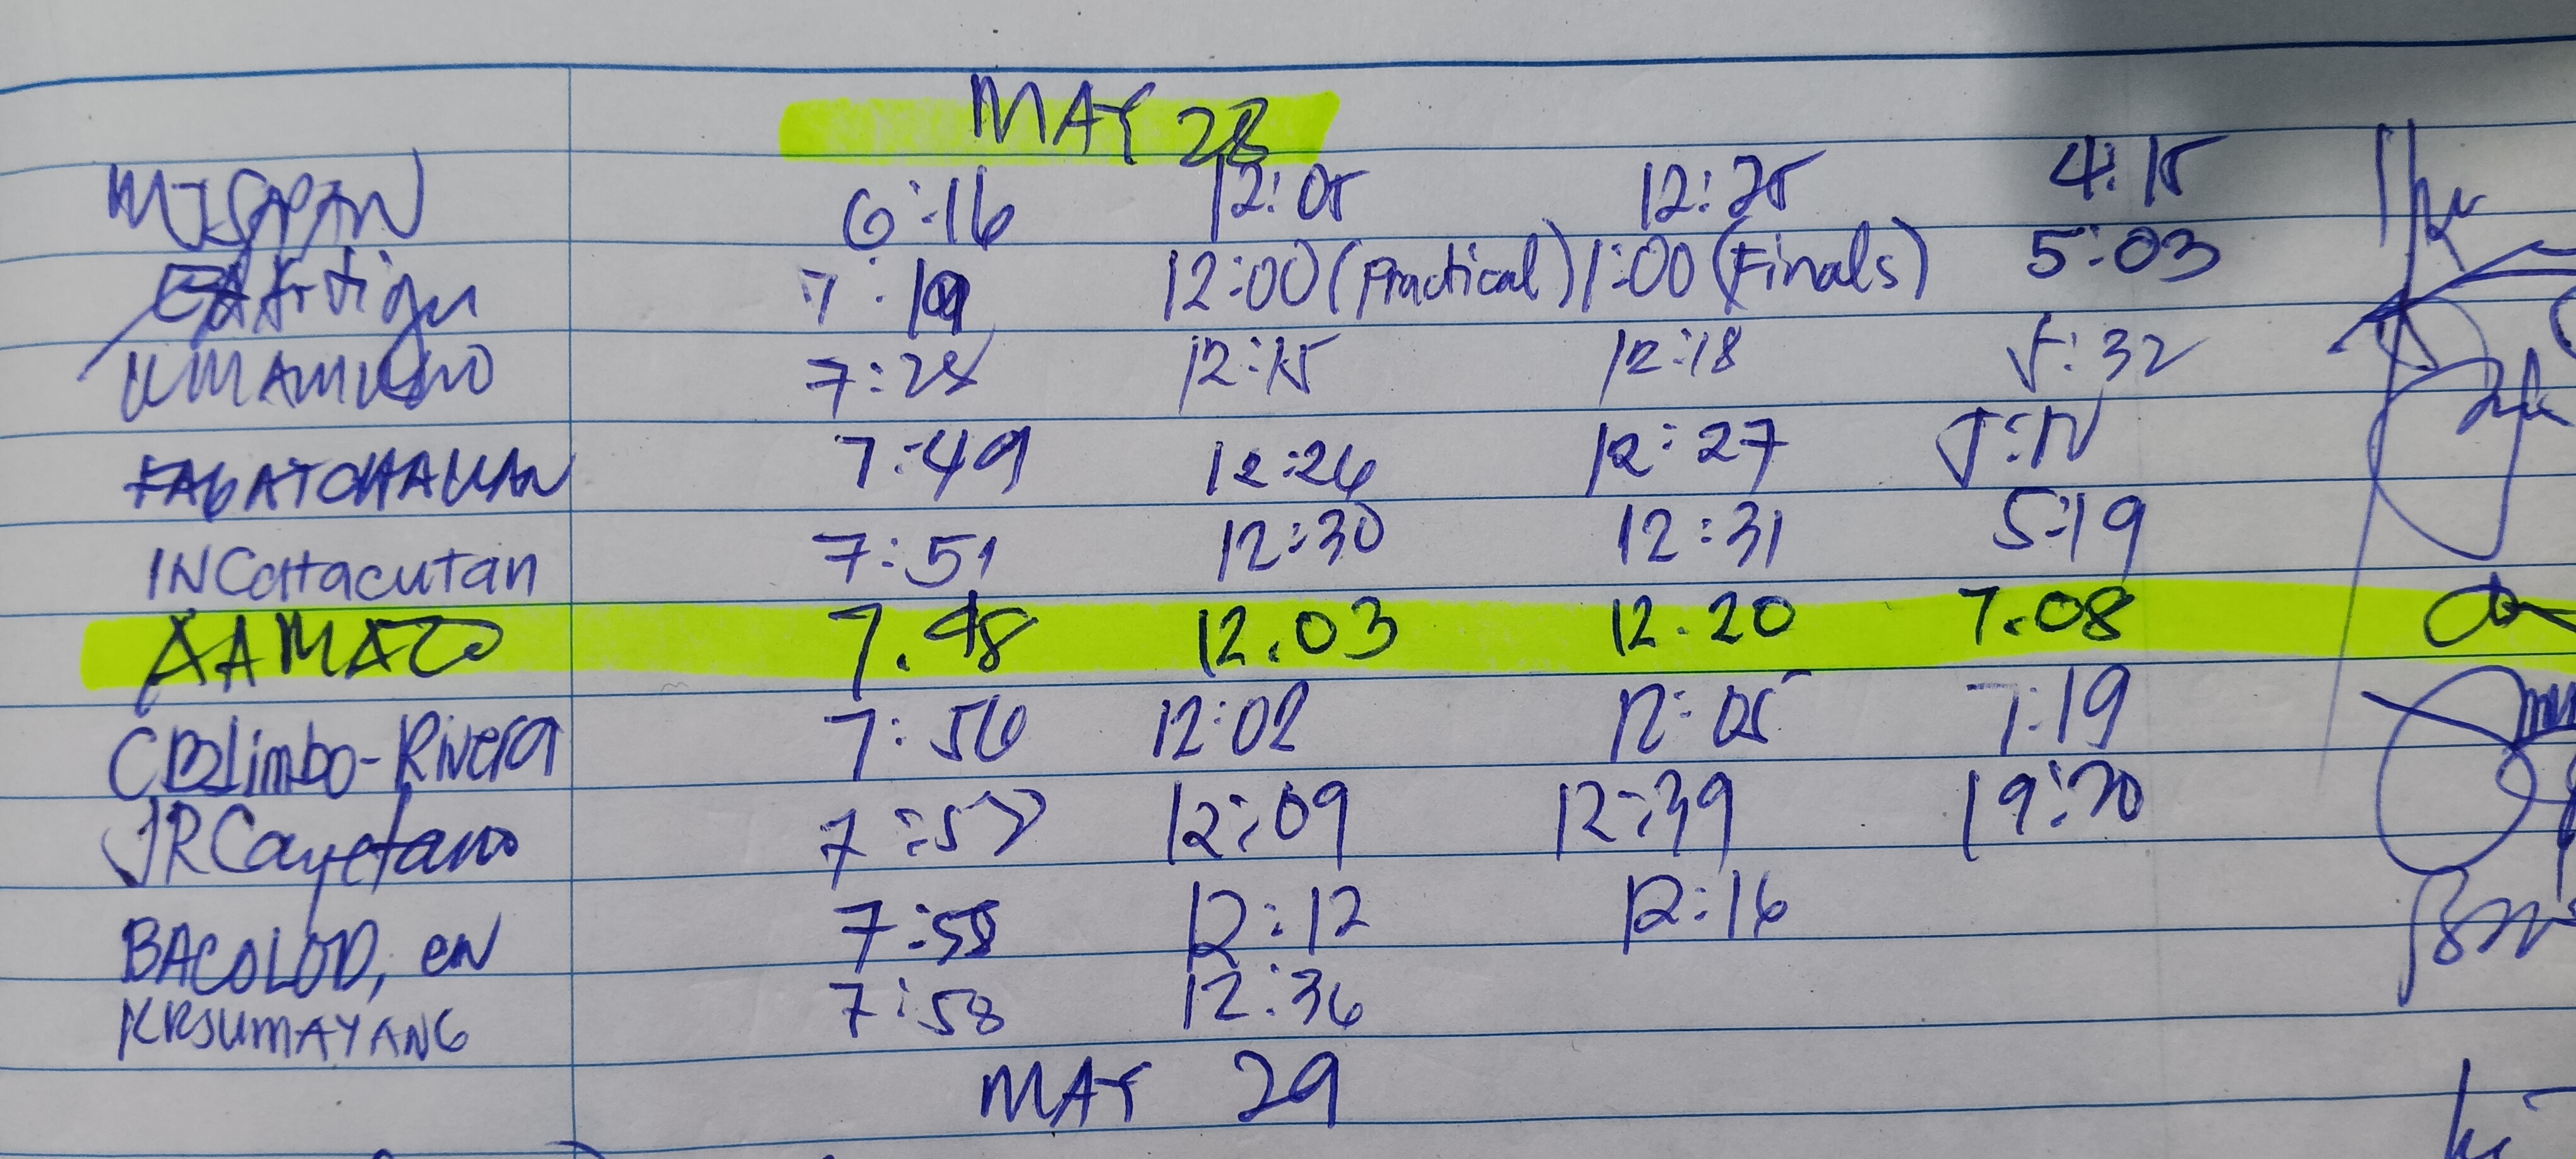 MAY 28
MJSAPAN 6:16 12:05 12:25 4:15
EAArtigu 7:19 12:00 (Practical) 1:00 (Finals) 5:03
7:28 12:15 12:18 5:32
7:49 12:26 12:27
INCatacutan 7:51 12:30 12:31 5:19
AAMACO 7.48 12.03 12.20 7.08
CBLimbo-Rivera 7:56 12:02 12:05 7:19
JRCayetano 7:57 12:09 12:39 19:20
BACOLOD, EN 7:58 12:12 12:16
KRSUMAYANG 7:58 12:36
MAY 29